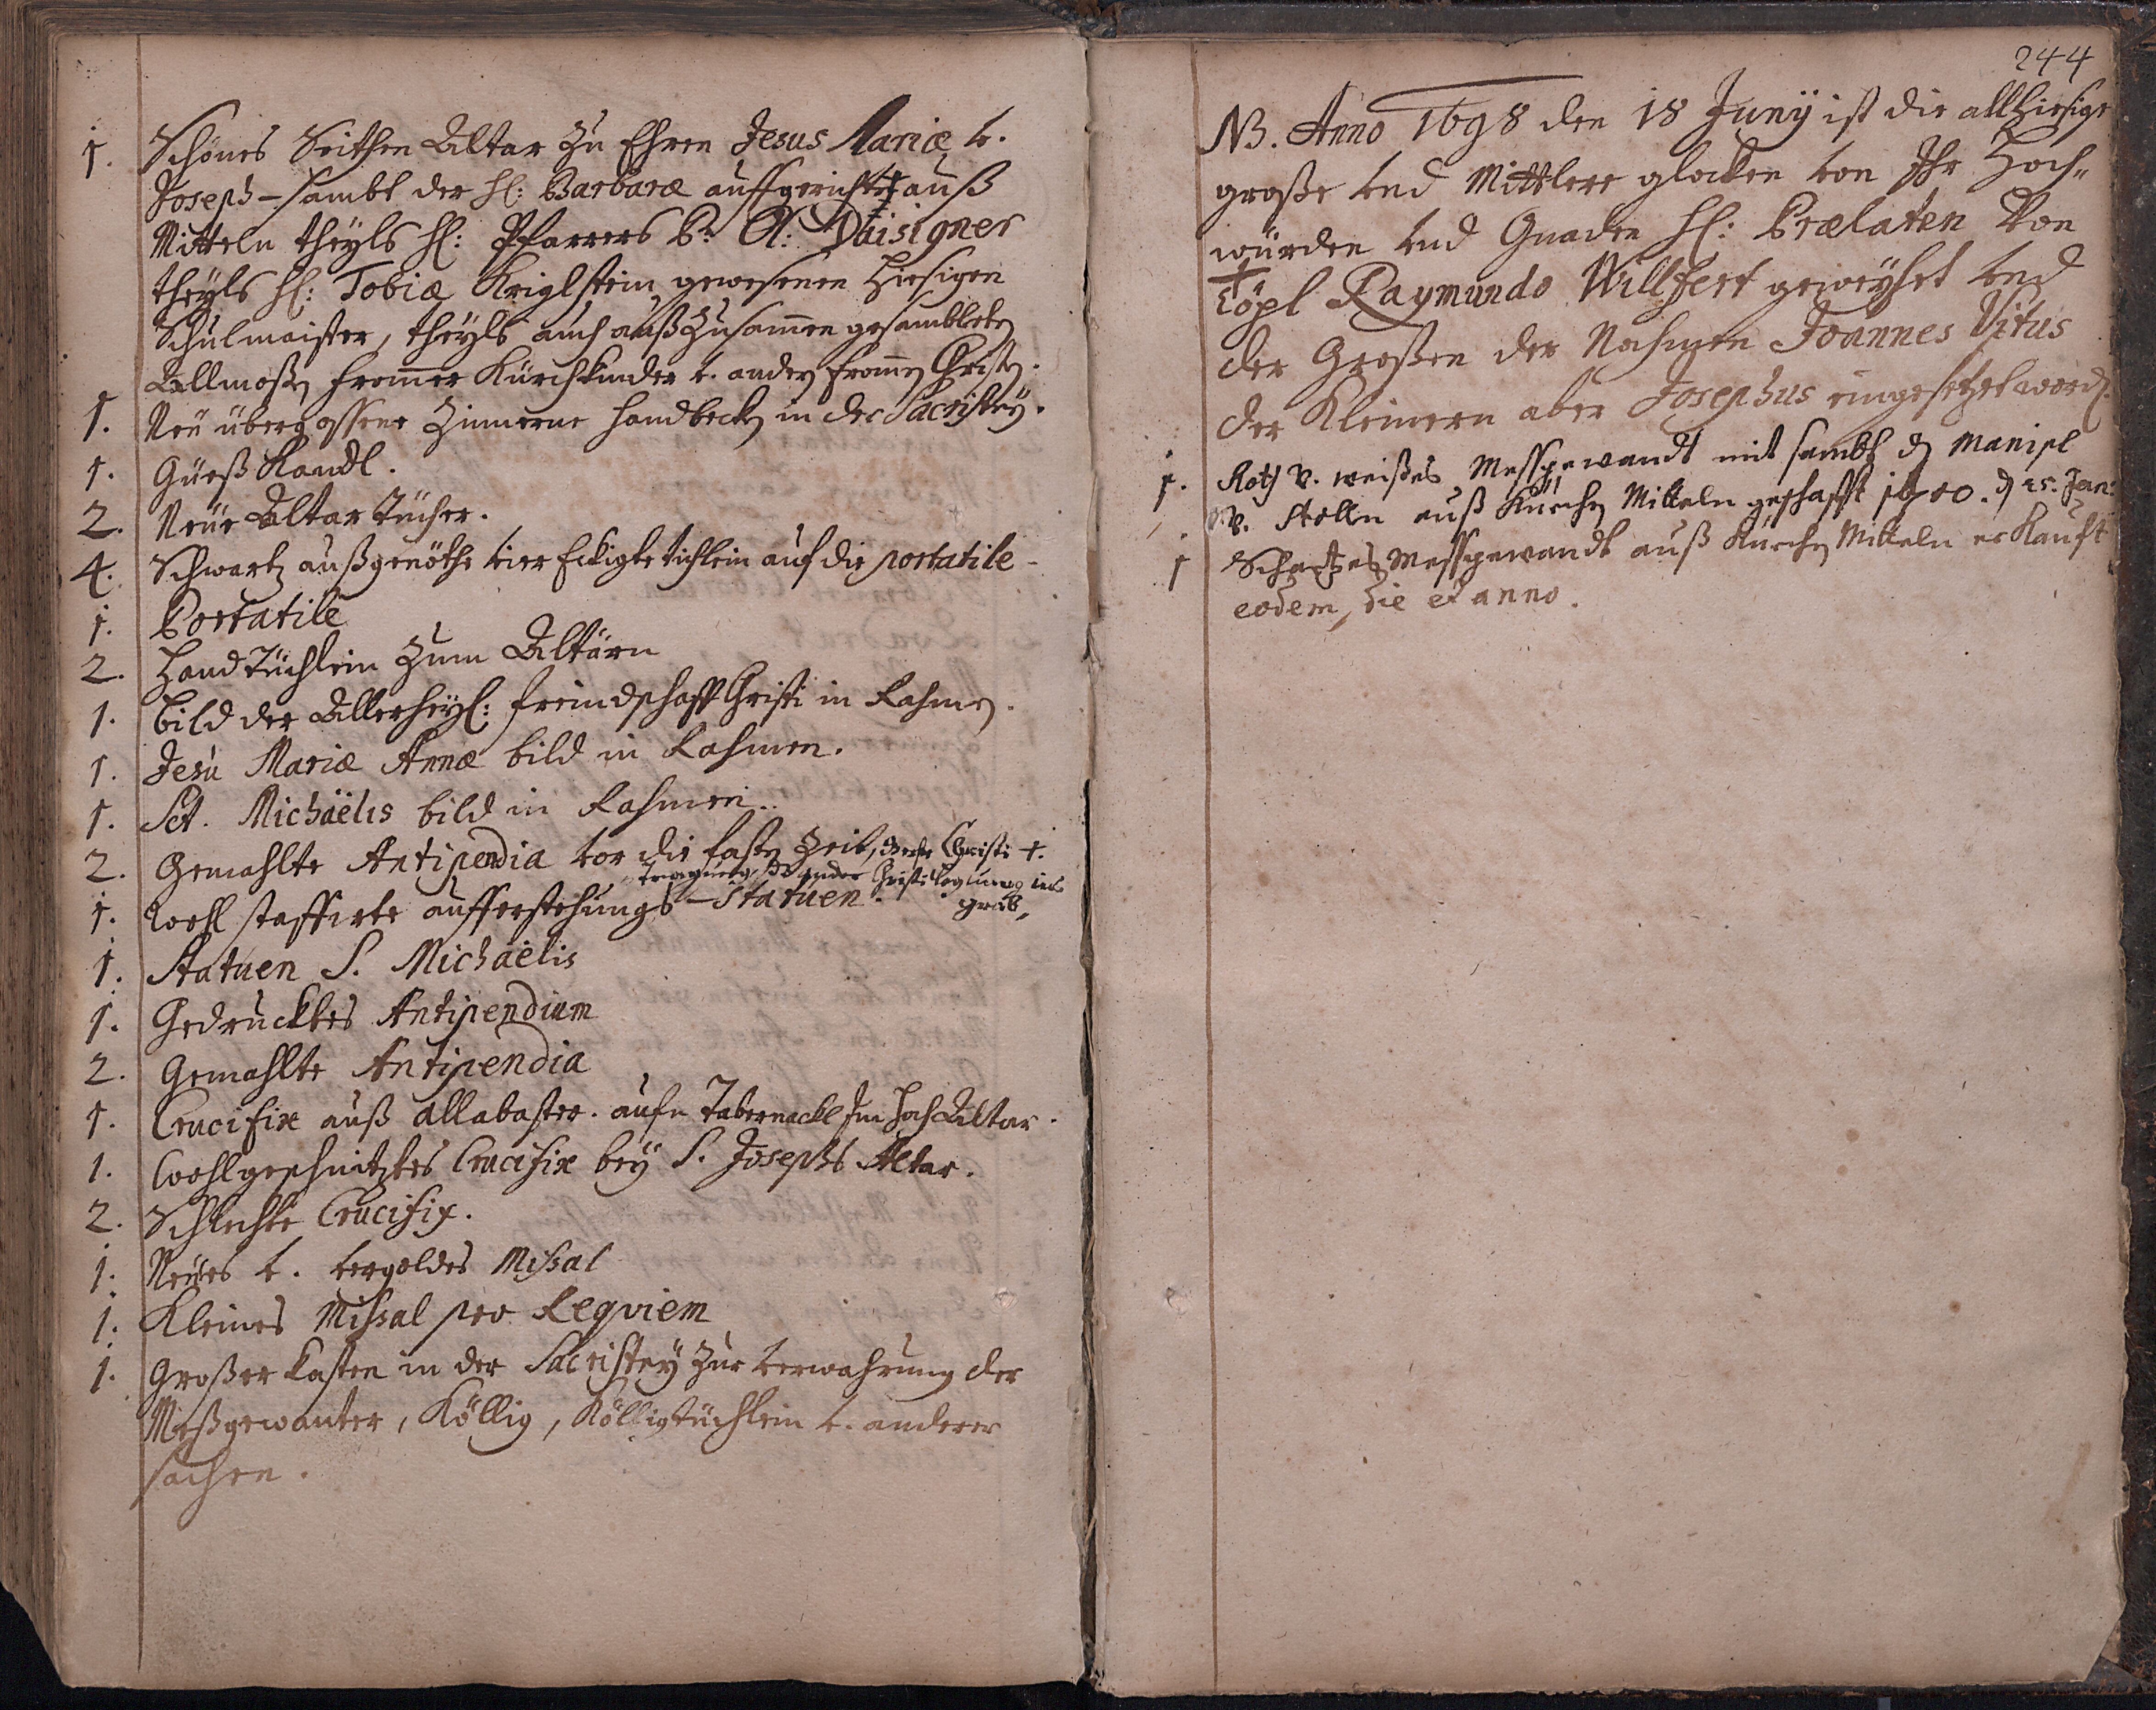 1. Schönes Seithen Altar zu Ehren Jesus Mariæ v.
Joseph – sambt der H: Barbaræ auffgerichtet auß
Mitteln theÿls H: Pfarrers P. A:
theÿls H: Tobiæ Kriglstein gewesenen hiesigen
Schulmaister, theÿls auch auß zusamen gesambleten
Allmoßen fromer Kürchkinder v. andern fromen Christen.
1. Neü übergossene Zinnerne handbecken in der Sacristeÿ.
1. Güeß Kandl.
2. Neüe Altar Tücher.
4. Schwartz außgenöthe vier Eckigte tichlein auf die portatile
1. Portatile
2. Handtüchlein zum Altären
1. bild der Allerheÿl: freindschafft Christi in Rahmen.
1. Jesu Mariæ Annæ bild in Rahmen.
1. Sct. Michaëlis bild in Rahmen.
2. Gemahlte Antipendia vor die fasten Zeit, Christi †.
Tragung, ander Christi Legung ins
1. Wohl staffirte aufferstehungs – Statuen. grab,
1. Statuen S. Michaëlis
1. Gedrucktes Antipendium
2. Gemahlte Antipendia
1. Crucifix auß allabaster. aufn Tabernackl Im hoch Altar.
1. Wohlgeschnitztes Crucifix beÿ S. Josephs Altar.
2. Schlechte Crucifix.
1. Neües v. vergoldes Missal
1. Kleines Missal pro Reqviem
1. Großer Kasten in der Sacristeÿ zur verwahrung der
Meßgewanter, Köllig, Kölligtüchlein v. anderer
sachen.
244
NB. Anno 1698 den 18 Junÿ ist die allhiesige
große vnd Mittlere glocken von Ihr Hoch-
würden vnd Gnaden H: Prælaten Von
Töpl Raymundo Willfert geweÿhet vnd
der Großen der Nahmen Joannes Vitus
der Kleinern aber Josephus eingesetzet worden.
1. Roth v. weißes Messgewandt mit sambt den Manipl
v. Stolln auß Kürchen Mitteln geschafft 1700. d 25. Jan:
1 Messgewandt auß Kürchen Mitteln erKaufft
eodem, die et anno.